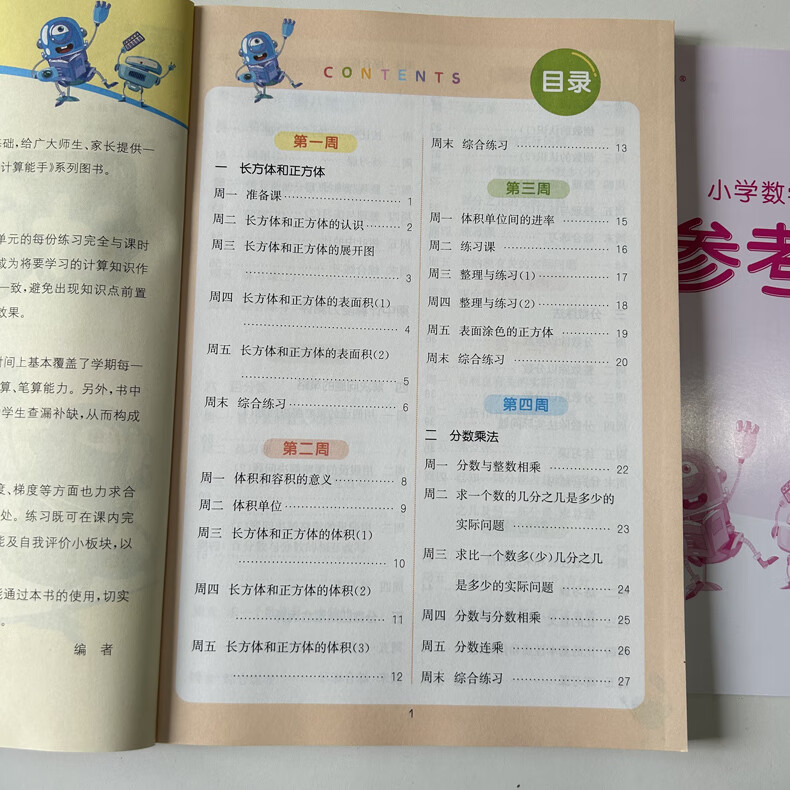 基础,给广大师生、家长提供一
计算能手》系列图书。
单元的每份练习完全与课时
成为将要学习的计算知识作
一致,避免出现知识点前置
效果。
时间上基本覆盖了学期每一
算、笔算能力。另外,书中
学生查漏补缺,从而构成
度、梯度等方面也力求合
处。练习既可在课内完
能及自我评价小板块,以
能通过本书的使用,切实
。
编 者
CONTENTS
目录
第一周
一 长方体和正方体
周一 准备课 …… 1
周二 长方体和正方体的认识 …… 2
周三 长方体和正方体的展开图
…… 3
周四 长方体和正方体的表面积(1)
…… 4
周五 长方体和正方体的表面积(2)
…… 5
周末 综合练习 …… 6
第二周
周一 体积和容积的意义 …… 8
周二 体积单位 …… 9
周三 长方体和正方体的体积(1)
…… 10
周四 长方体和正方体的体积(2)
…… 11
周五 长方体和正方体的体积(3)
…… 12
周末 综合练习 …… 13
第三周
周一 体积单位间的进率 …… 15
周二 练习课 …… 16
周三 整理与练习(1) …… 17
周四 整理与练习(2) …… 18
周五 表面涂色的正方体 …… 19
周末 综合练习 …… 20
第四周
二 分数乘法
周一 分数与整数相乘 …… 22
周二 求一个数的几分之几是多少的
实际问题 …… 23
周三 求比一个数多(少)几分之几
是多少的实际问题 …… 24
周四 分数与分数相乘 …… 25
周五 分数连乘 …… 26
周末 综合练习 …… 27
1
®
小学数学
参考